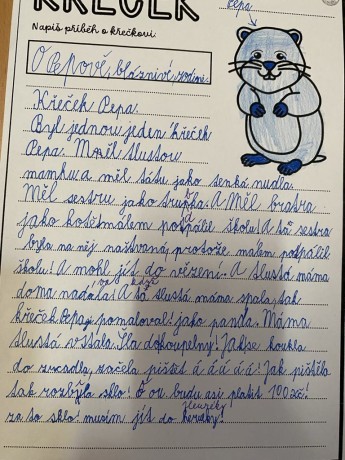 KŘEČEK
Pepa
Napiš příběh o křečkovi.
O Pepově, bláznivé rodině.
Křeček Pepa.
Byl jednou jeden křeček
Pepa. Měl tlustou
mamku a měl tátu jako tenká nudla.
Měl sestru jako A měl bratra
jako málem podpálil školu! A tá sestra
byla na něj naštvaná, protože málem podpálil
školu! A mohl jít do vězení. A tlustá máma
doma nadávala! A když tá tlustá máma spala, tak
křeček Pepa jí pomaloval! jako panda. Máma
tlustá vstala. Šla do koupelny! Jak se koukla
do zrcadla, začela pištět á á á á á! Jak pištěla
tak rozbyla sklo! budu asi platit 100 kč.
za to sklo! musím jít do herny!